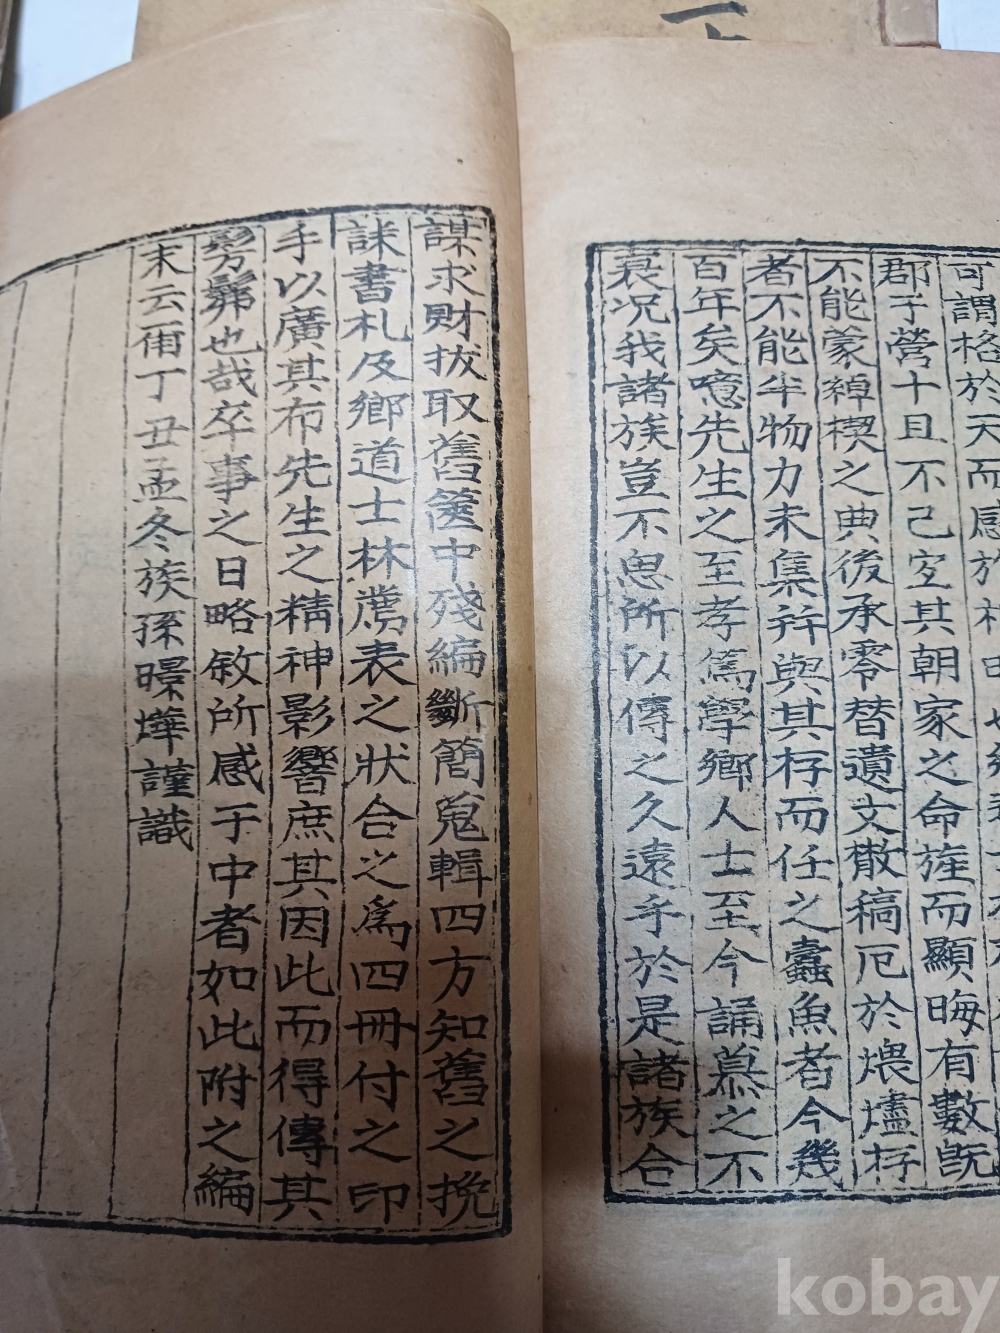 可謂格於天而感於神
郡子營十且不已宲其朝家之命旌而顯晦有數旣
不能蒙綽楔之典後承零替遺文散稿厄於煨爐存
者不能半物力未集幷與其存而任之蠹魚者今幾
百年矣噫先生之至孝爲學鄉人士至今誦慕之不
衰况我諸族豈不思所以傳之久遠乎於是諸族合
謀求財拔取舊篋中殘編斷簡蒐輯四方知舊之挽
誄書札及鄉道士林薦表之狀合之爲四冊付之印
手以廣其布先生之精神影響庶其因此而得傳其
髣髴也哉卒事之日略敘所感于中者如此附之編
末云甭丁丑孟冬族孫暻燁謹識
kobay